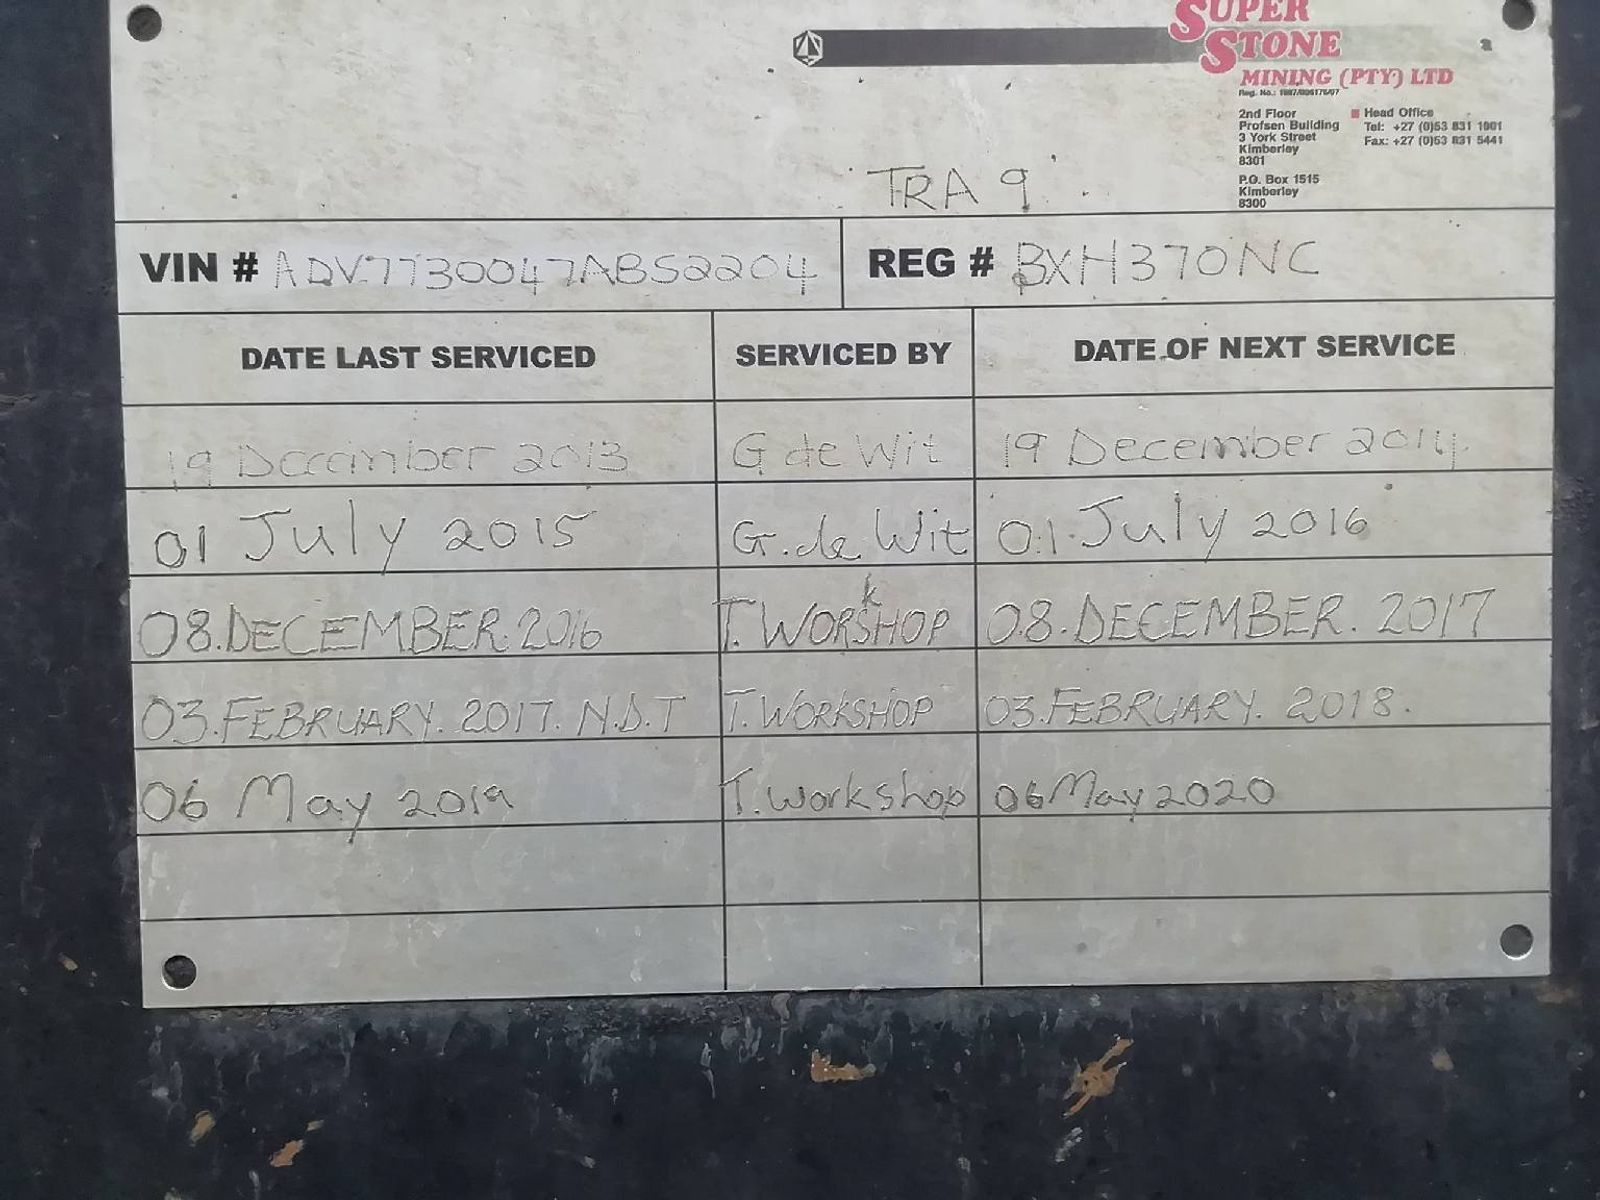 SUPER
STONE
MINING (PTY) LTD
2nd Floor
Profsen Building
3 York Street
Kimberley
8301
P.O. Box 1515
Kimberley
8300
Head Office
Tel: +27 (0)53 831 1001
Fax: +27 (0)53 831 5441
TRA 9
VIN # ADV7730047ABS2204 REG # BXH370NC
DATE LAST SERVICED SERVICED BY DATE OF NEXT SERVICE
19 December 2013 G de Wit 19 December 2014
01 July 2015 G. de Wit 01. July 2016
08.DECEMBER.2016 T.WORKSHOP 08.DECEMBER. 2017
03.FEBRUARY. 2017. N.D.T T.WORKSHOP 03.FEBRUARY. 2018.
06 May 2019 T.workshop 06 May 2020